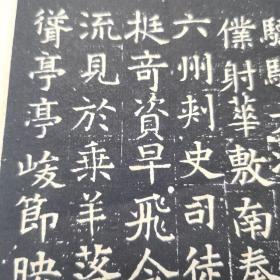 僕射華敷南春
六州刾史司徒
挺竒資早飛令
流見於乗羊落
聳亭亭峻節映